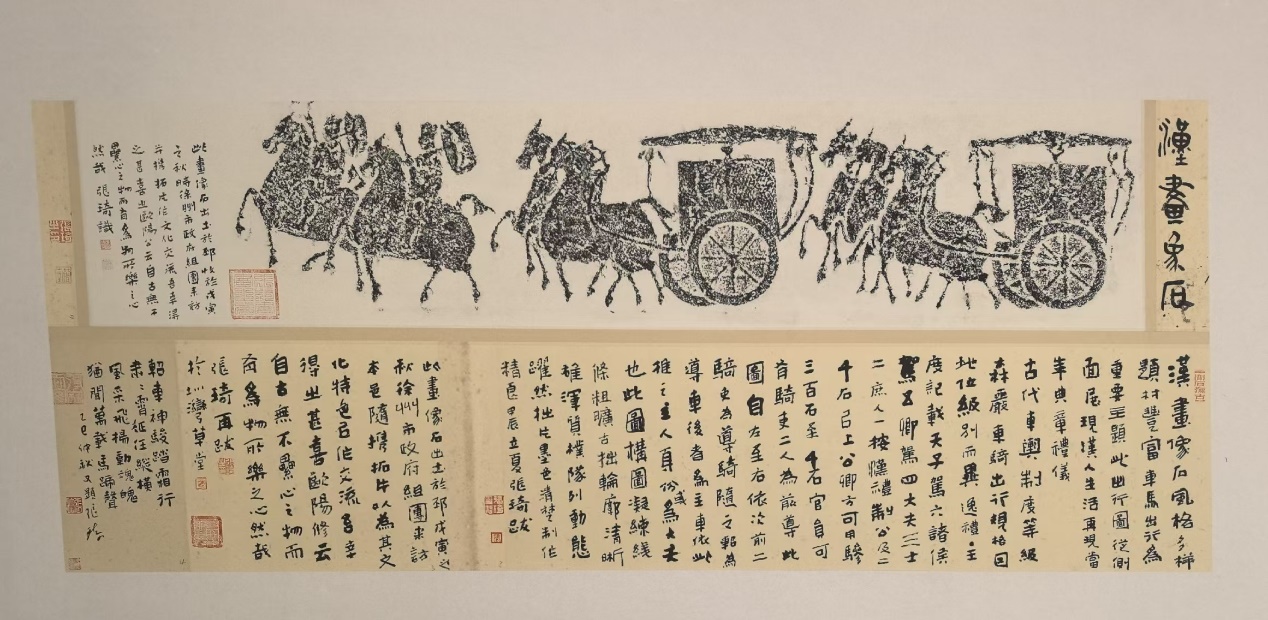 漢畫象石
此畫像石出土於邳州於戊寅
之秋時徐州市政府組團來訪
並攜拓片作文化交流吾幸得
之甚喜也歐陽公云自古無不
累心之物而有為物所樂之心
然哉 張琦識
漢畫像石風格多樣
題材豐富車馬出行為
重要主題此出行圖從側
面展現漢人生活再現當
年典章禮儀
古代車輿制度等級
森嚴車騎出行規格因
地位級別而異逸禮·王
度記載天子駕六諸侯
駕五卿駕四大夫三士
二庶人一按漢禮制公及二
千石以上公卿方可用驂
三百石至千石官員可
有騎吏二人為前導此
圖自左至右依次前二
騎吏為導騎隨之軺為
導車後者為主車依此
推之主人身份或為大夫
也此圖構圖凝練綫
條粗獷古拙輪廓清晰
雄渾質樸隊列動態
躍然拙片墨色清楚制作
精良甲辰立夏張琦跋
此畫像石出土於邳戊寅之
秋徐州市政府組團來訪
本邑隨攜拓片以為其文
化特色以作交流吾幸
得之甚喜歐陽修云
自古無不累心之物而
有為物所樂之心然哉
張琦再跋
於圳灣草堂
軺車紳綬踏霜行
肅肅霄征任縱橫
風采飛揚動魂魄
猶聞萬載馬蹄聲
乙巳仲秋又題張琦